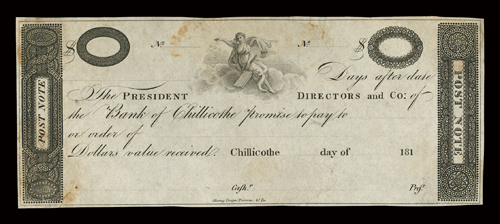 $ 0 Nº Nº $ 0
POST NOTE
POST NOTE
Days after date
The PRESIDENT DIRECTORS and Co: of
the Bank of Chillicothe Promise to pay to
or order of
Dollars value received. Chillicothe day of 181
Cashr. Prest.